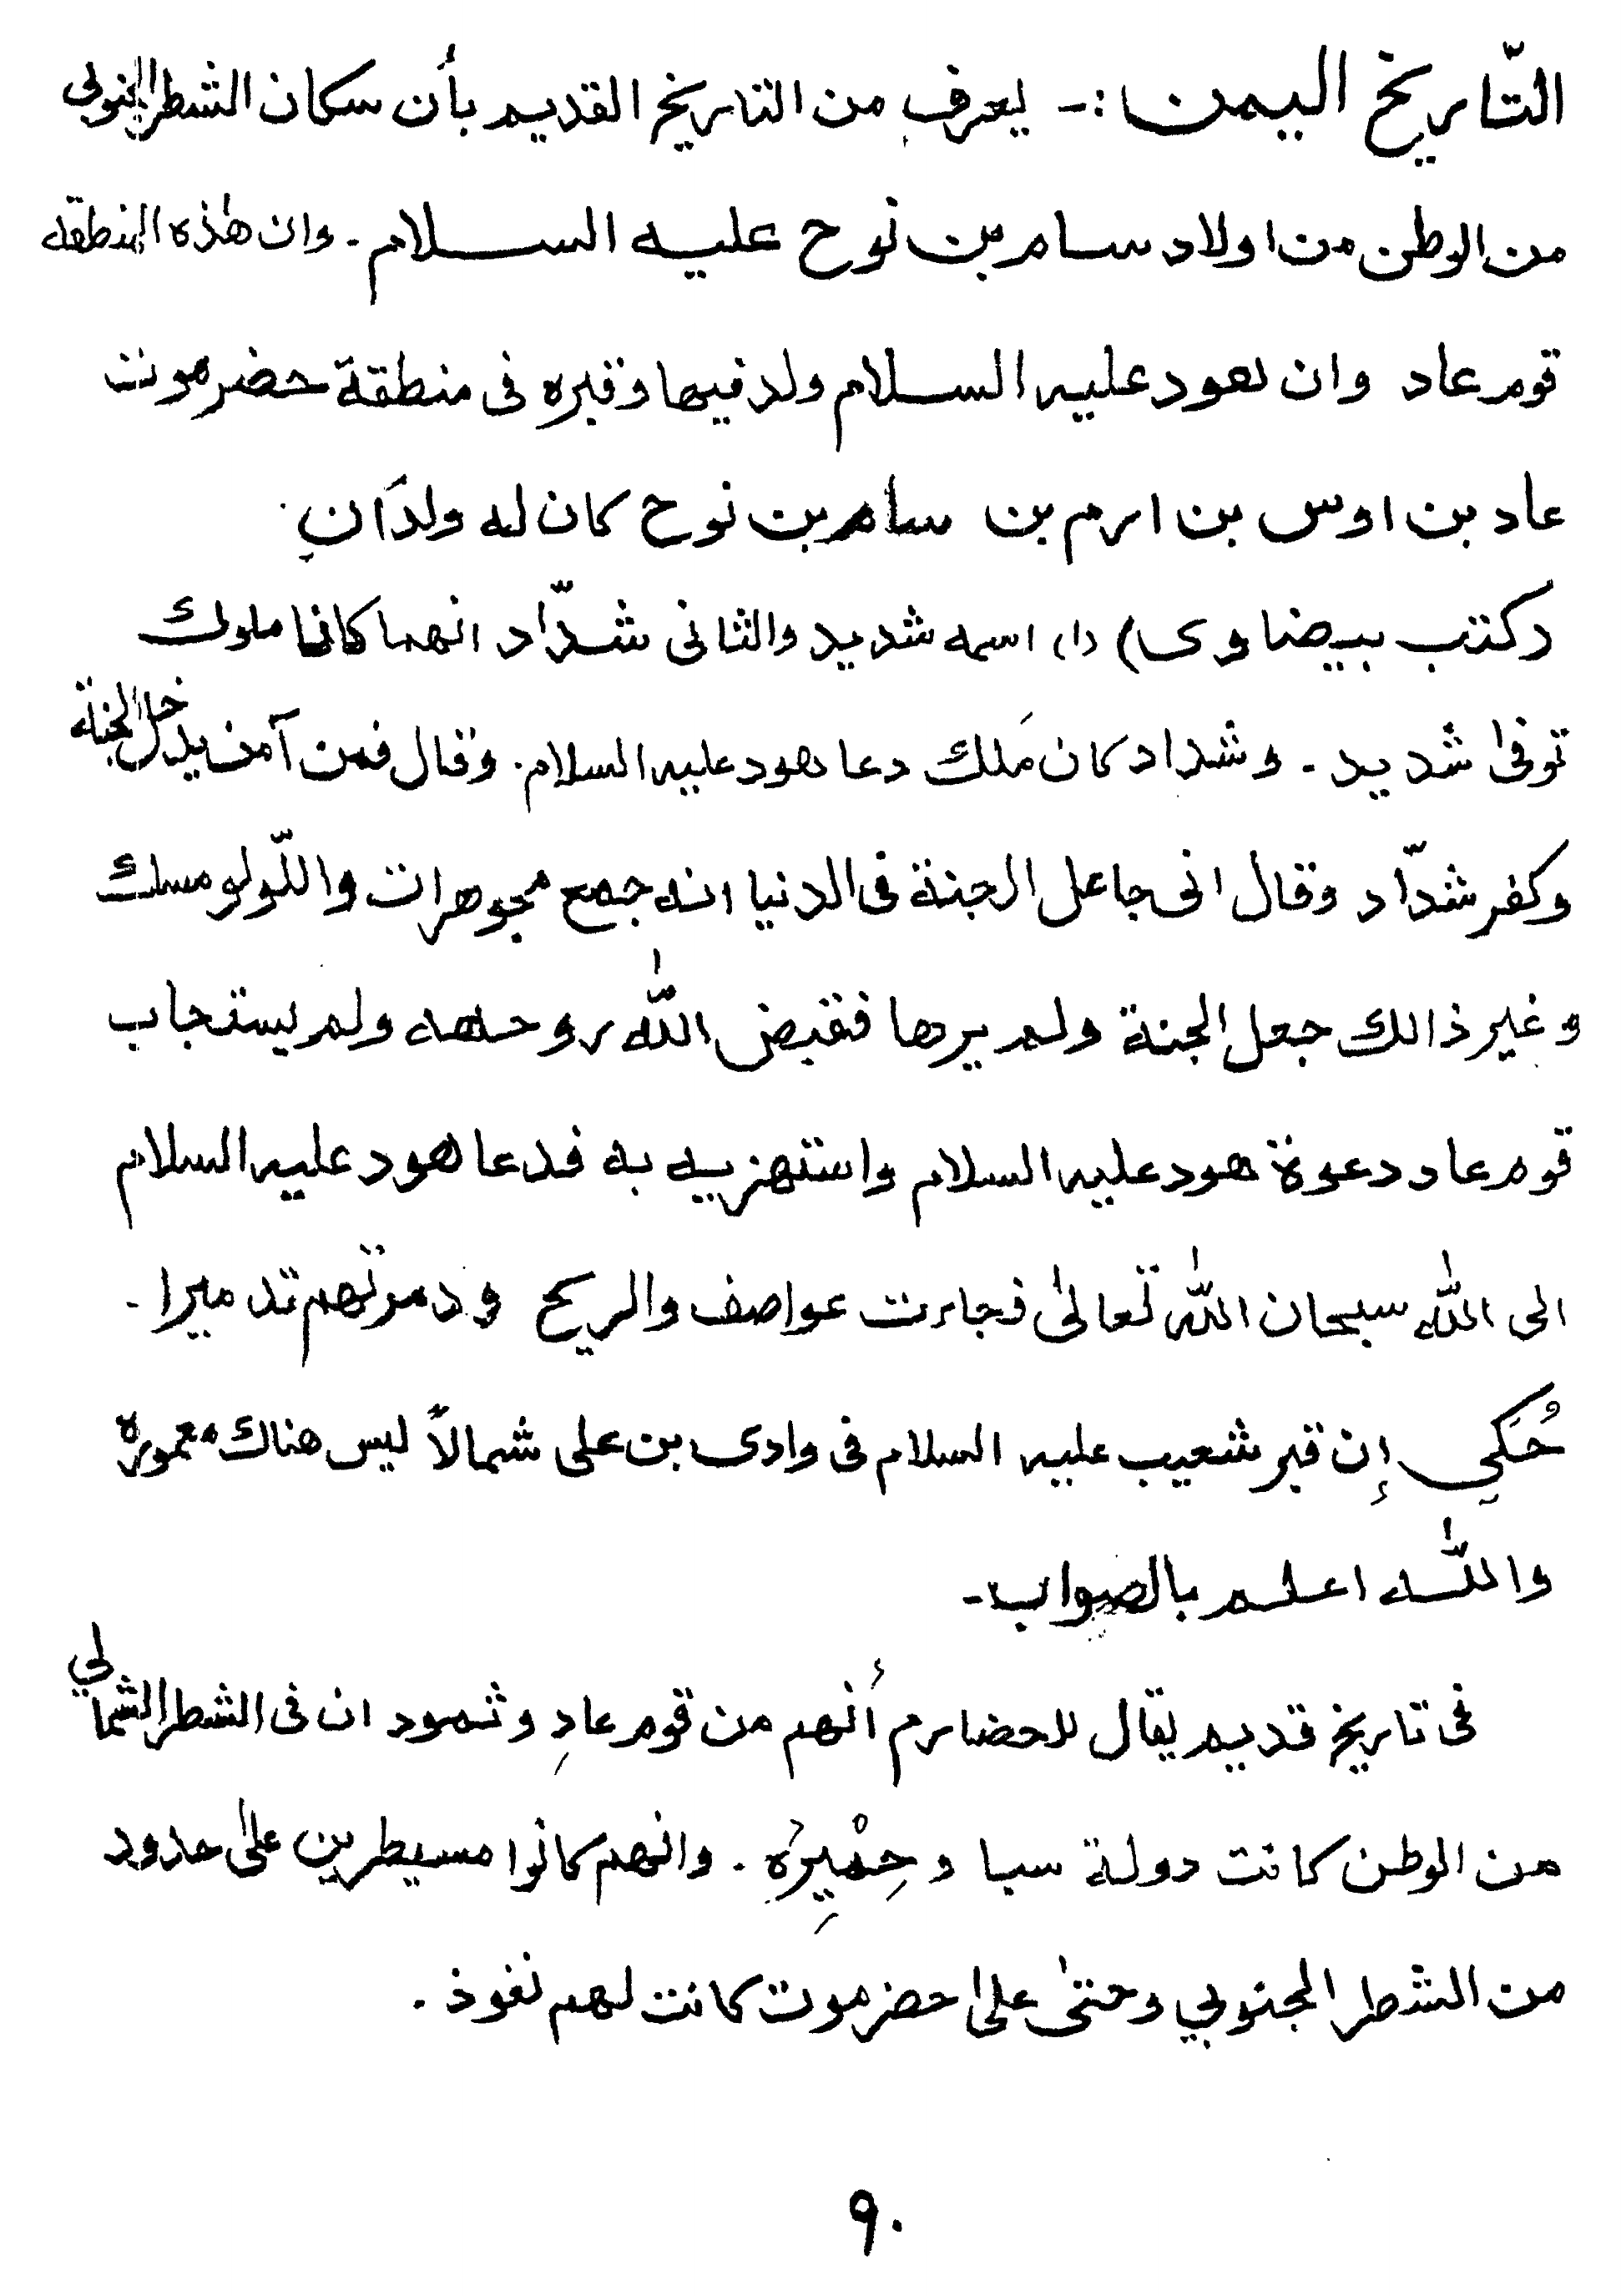 التّاريخ اليمن :- ليعرف من التاريخ القديم بأن سكان الشطر الجنوبي
من الوطن من اولاد سام بن نوح عليه السلام . وان هٰذه المنطقه
قوم عاد وان هود عليه السلام ولد فيها وقبره فى منطقة حضرموت
عاد بن اوس بن ارم بن سام بن نوح كان له ولدَانِ .
(كتب بيضاوى) (١) اسمه شديد والثانى شدّاد انهما كانا ملوك
توفىٰ شديد . وشداد كان مَلك دعا هود عليه السلام . وقال فمن آمن يدخل الجنة
وكفر شدّاد وقال انى جاعل الجنة فى الدنيا انه جمع مجوهرات واللّولو مسك
وغير ذالك جعل الجنة ولم يرها فقبض اللّٰه روحهه ولم يستجاب
قوم عاد دعوة هود عليه السلام واستهزيه به فدعا هود عليه السلام
الى اللّٰه سبحان اللّٰه تعالىٰ فجاءت عواصف والريح ودمرتهم تدميرا .
حُكَي إن قبر شعيب عليه السلام فى وادى بن على شمالاً ليس هناك معموره
واللّٰه اعلم بالصواب .
فى تاريخ قديم يقال للحضارم أنهم من قوم عادِ وثمود ان فى الشطر الشمالي
من الوطن كانت دولة سبا وحِمْيِرُه . وانهم كانوا مسيطرين علىٰ حدود
من الشطر الجنوبي وحتىٰ علىٰ حضرموت كانت لهم نفوذ .
٩٠